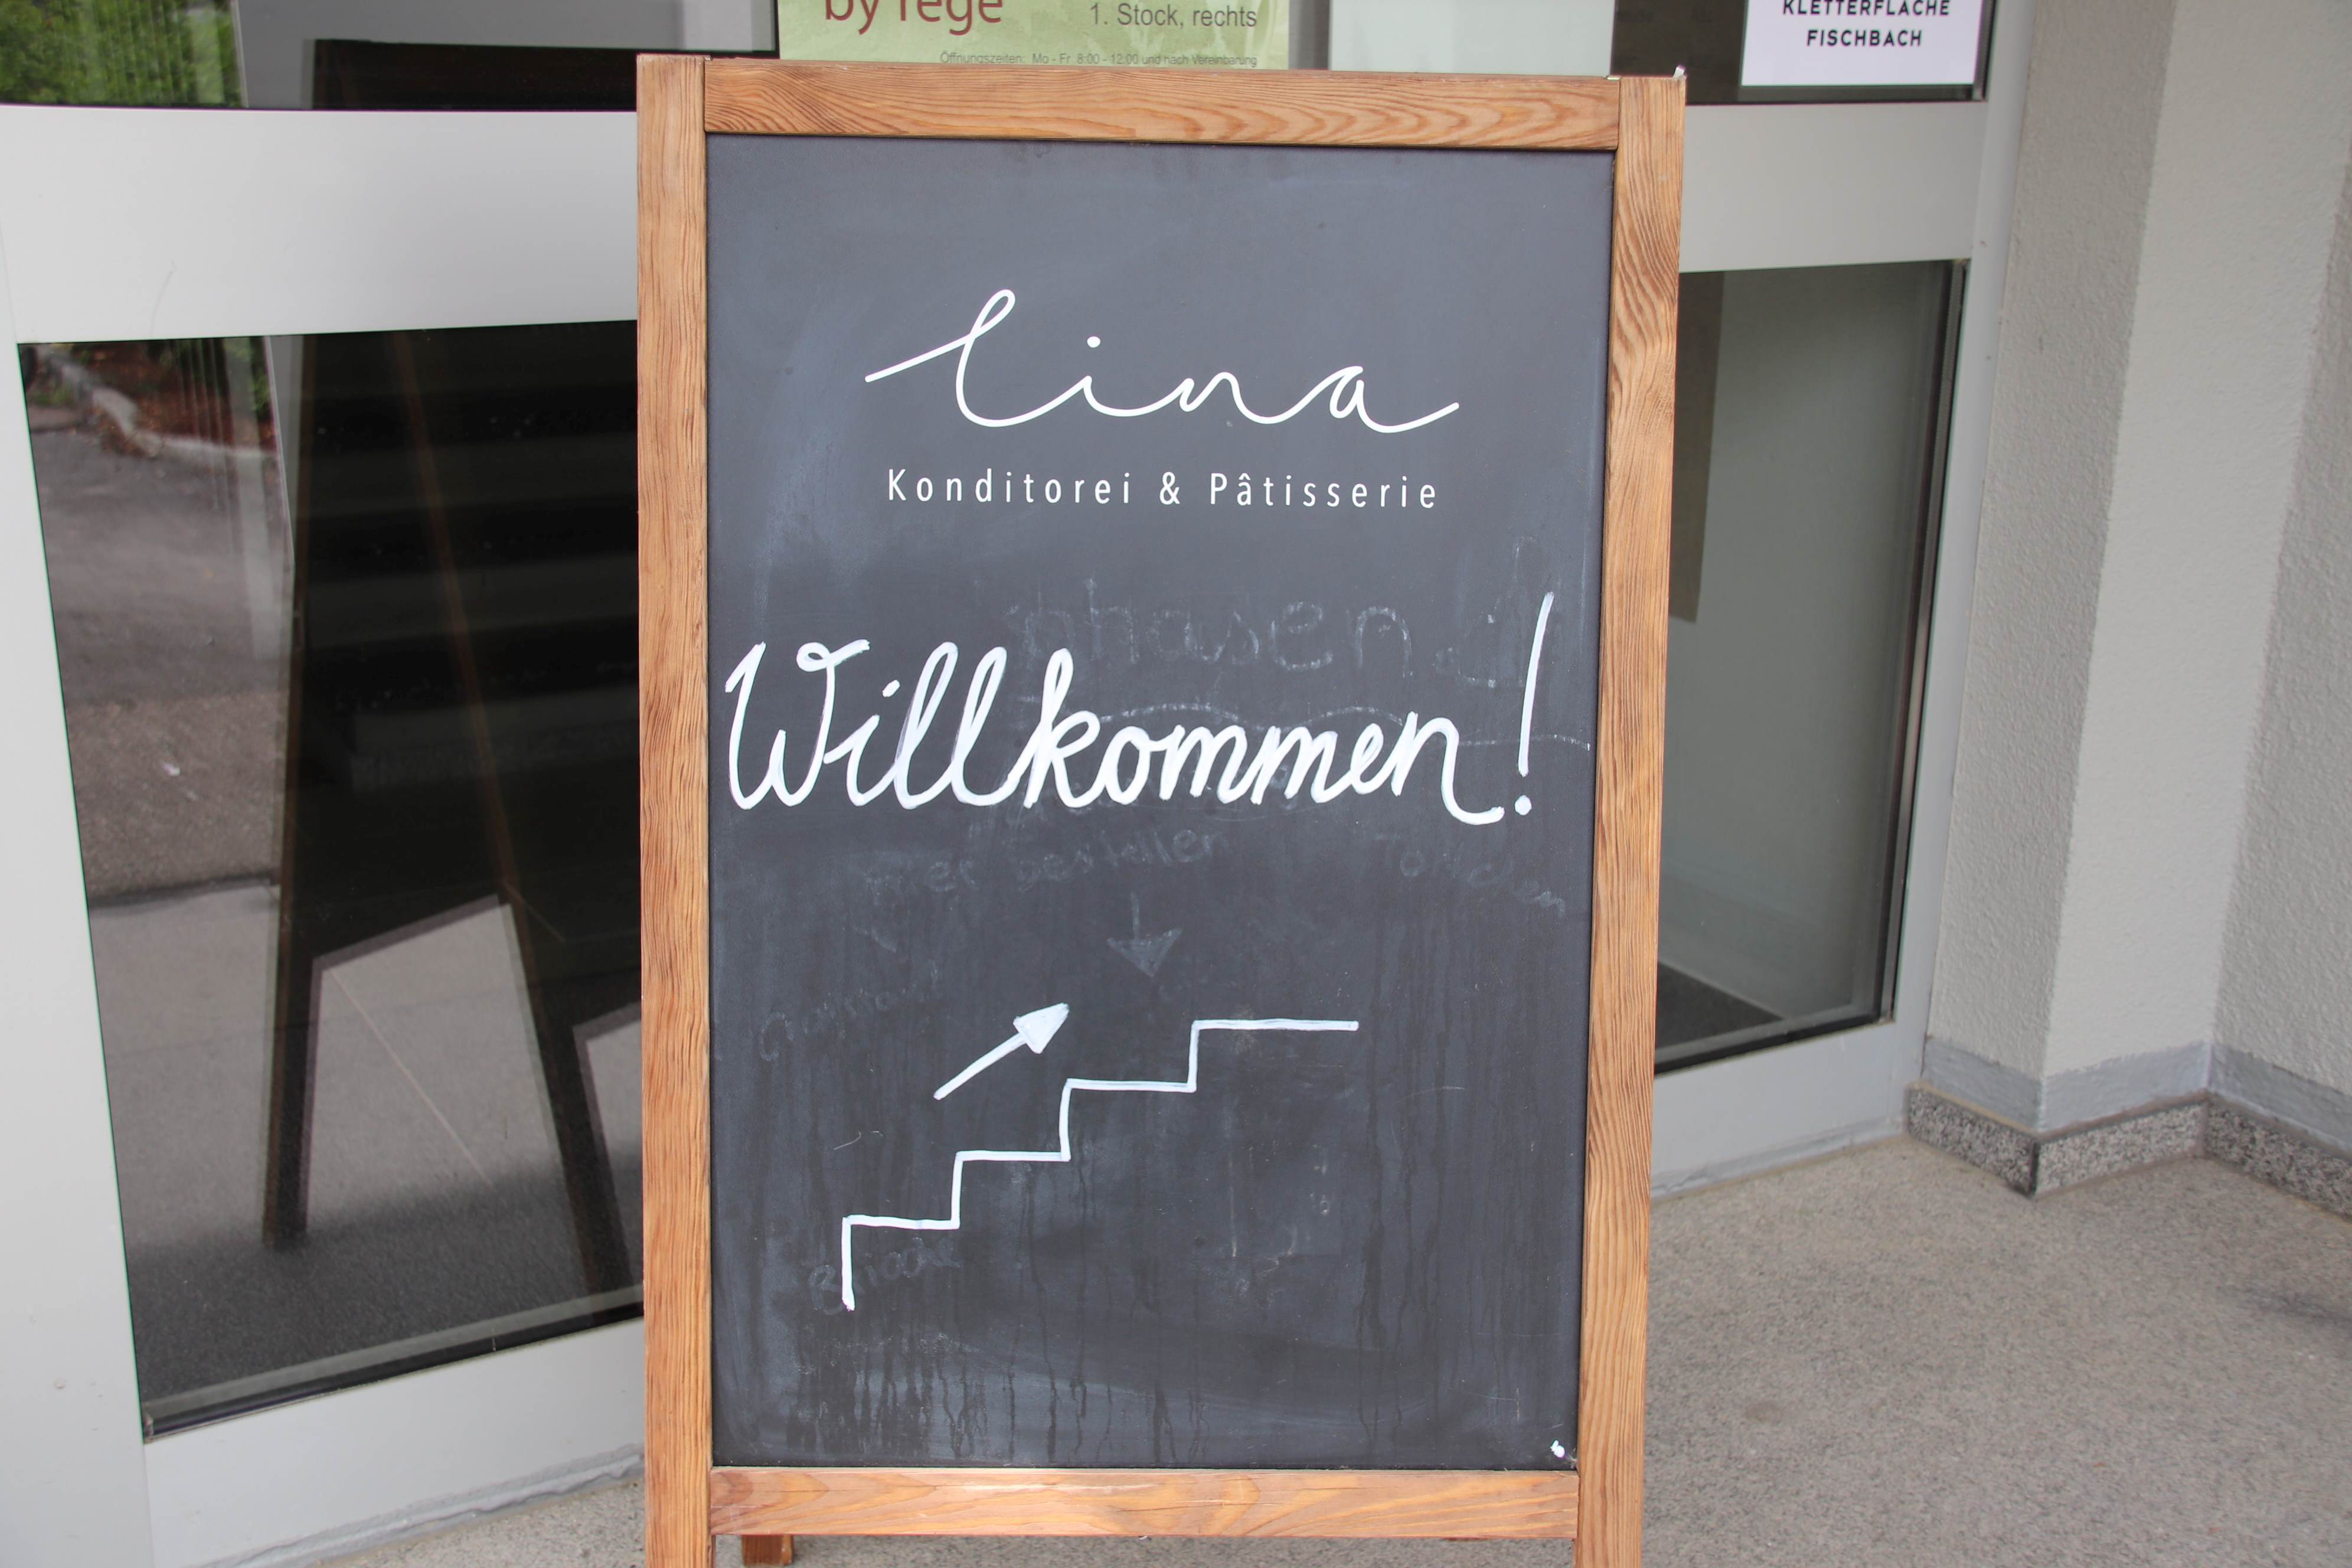 by rege
1. Stock, rechts
Öffnungszeiten: Mo - Fr 8:00 - 12:00 und nach Vereinbarung
KLETTERFLÄCHE
FISCHBACH
lina
Konditorei & Pâtisserie
hasen
Willkommen!
bestellen